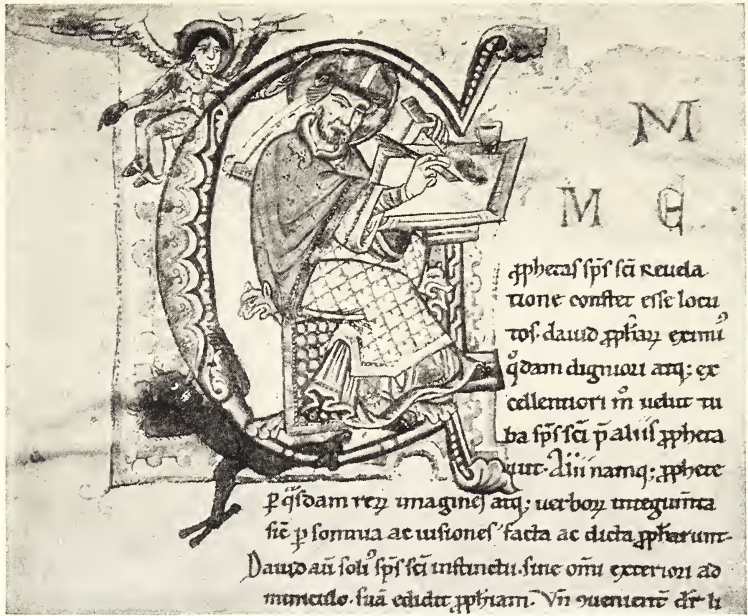 C M
M E
ꝓphetas sp̄s sc̄i Reuela
tione conſtet eſſe locu
tos. dauid ꝓph̄aꝝ eximi⁹
q̊dam digniori atq; ex
cellentiori m̊ uelut tu
ba sp̄s sc̄i p̄ aliis ꝓpheta
uit. Alii namq; ꝓphete
ꝑ q̄ſdam reꝝ imagineſ atq; uerboꝝ integum̄ta
ſic̄ ꝑ ſomnia ac uiſioneſ facta ac dicta ꝓph̄arunt.
Dauid au̅ soli⁹ sp̄s sc̄i inſtinctu. ſine om̄i exteriori ad
miniculo. ſuā edidit ꝓph̄iam. Vn̄ ꝯuenient̄ dr̄ li